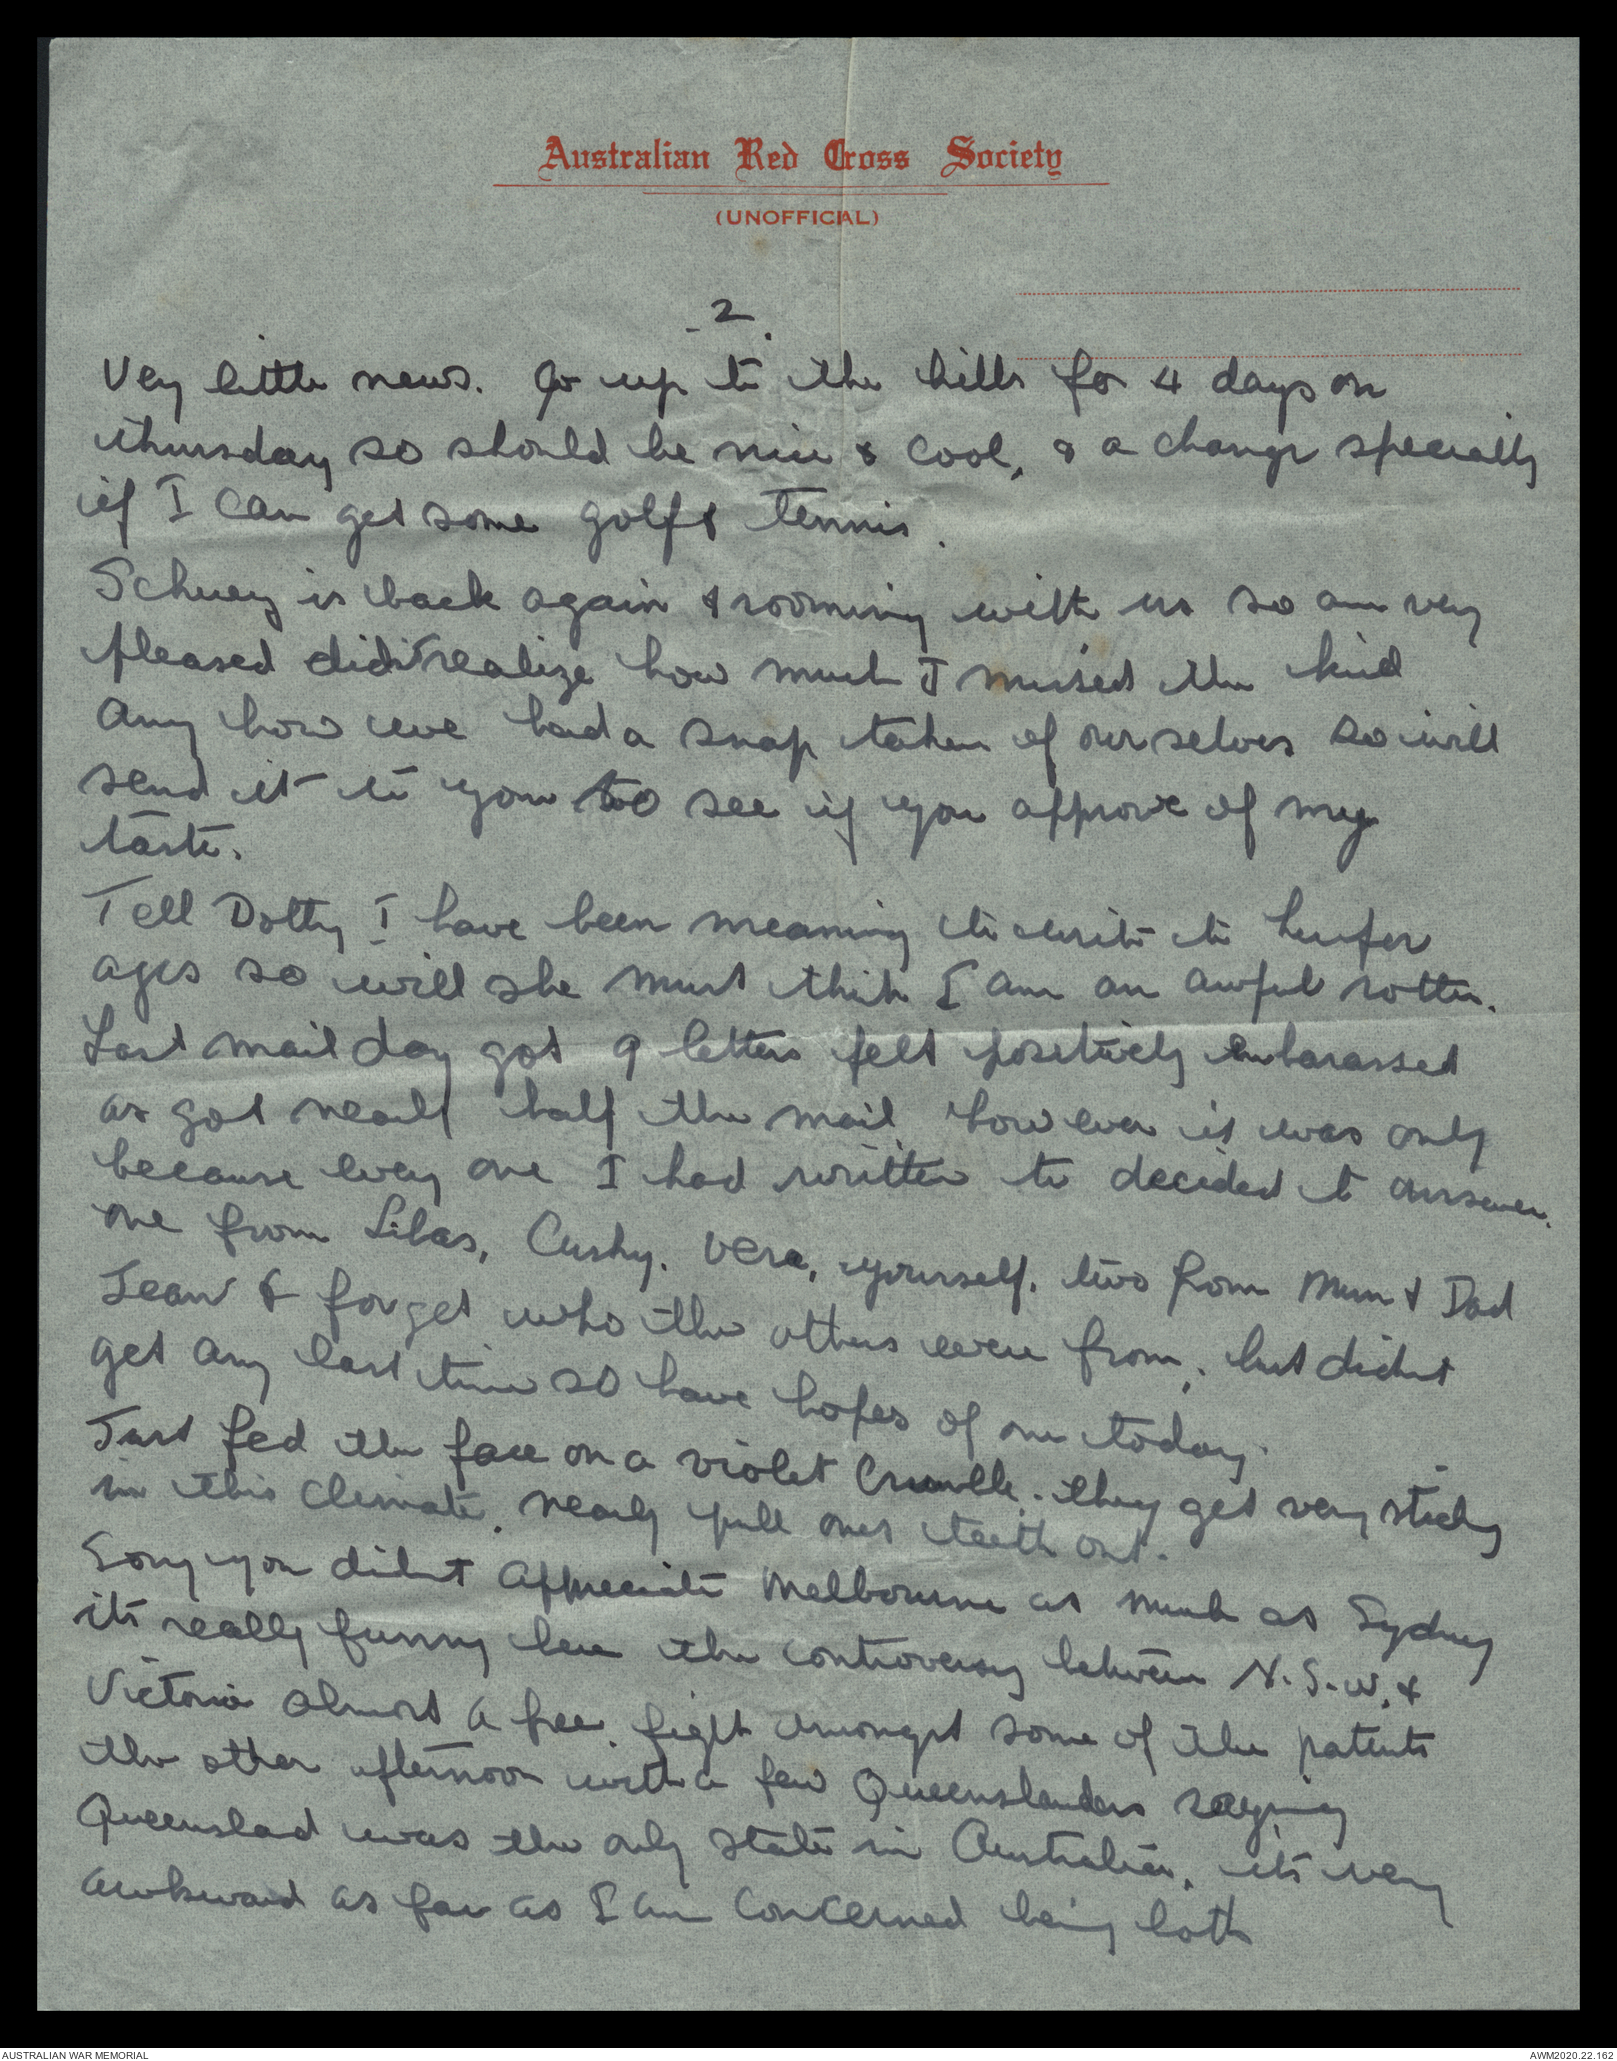 Australian Red Cross Society
(UNOFFICIAL)
- 2.
Very little news. Go up to the hills for 4 days on
thursday so should be nice & cool, & a change specially
if I can get some golf & tennis.
Schuey is back again & rooming with us so am very
pleased didn't realize how much I missed the kid
Any how we had a snap taken of ourselves so will
send it to you too see if you approve of my
taste.
Tell Dotty I have been meaning to write to her for
ages so will she must think I am an awful rotter.
Last mail day got 9 letters felt positively embarassed
as got nearly half the mail however it was only
because every one I had written to decided to answer.
one from Silas, Cushy. Vera, yourself. two from Mum & Dad
Jean & forget who the others were from, but didnt
get any last time so have hopes of one today.
Just fed the face on a violet Crumble. they get very sticky
in this climate. nearly pull ones teeth out.
Sorry you didnt appreciate Melbourne as much as Sydney
its really funny here the controversy between N.S.W. &
Victoria almost a free fight amongst some of the patients
the other afternoon with a few Queenslanders saying
Queenslad was the only state in Australia, its very
awkward as far as I am concerned being both
AUSTRALIAN WAR MEMORIAL
AWM2020.22.162